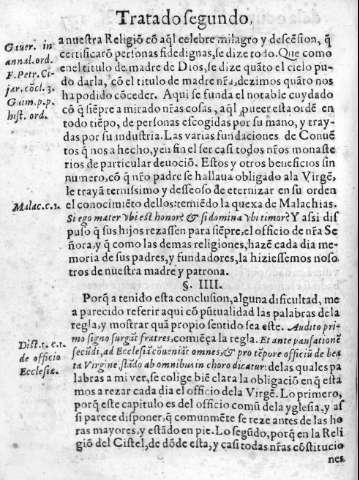 Tratado segundo,
a nuestra Religiõ cõ aq̃l celebre milagro y descēsion, q̃
Gauer. in
annal. ord.
F. Petr. Ci-
jar. cōcl. 3.
Guim. p. p.
hist. ord.
certificarõ personas fidedignas, se dize todo. Que como
en el titulo de madre de Dios, se dize quãto el cielo pu-
do darla, cõ el titulo de madre nr̃a, dezimos quãto nos
ha podido cõceder. Aqui se funda el notable cuydado
cõ q̃ siẽpre a mirado nr̃as cosas, aq̃l pueer esta ordẽ en
todo tiẽpo, de personas escogidas por su mano, y tray-
das por su industria. Las varias fundaciones de Conuē
tos q̃ nos a hecho, y en fin el ser casi todos nr̃os monaste
rios de particular deuociõ. Estos y otros beneficios sin
numero, cõ q̃ nr̃o padre se hallaua obligado ala Virgẽ,
le trayã ternissimo y desseoso de eternizar en su orden
Malac. c. 1.
el conocimiẽto dellos: temiẽdo la quexa de Malachias.
Si ego mater vbi est honor & si domina vbi timor? Y assi dis
puso q̃ sus hijos rezassen para siẽpre, el officio de nr̃a Se
ñora, y q̃ como las demas religiones, hazẽ cada dia me
moria de sus padres, y fundadores, la hiziessemos noso
tros de nuestra madre y patrona.
§. IIII.
Porq̃ a tenido esta conclusion, alguna dificultad, me
a parecido referir aqui cõ pũtualidad las palabras de la
regla, y mostrar quã propio sentido sea este. Audito pri-
mo signo surgãt fratres, comiẽça la regla. Et ante pausationē
Dist. 1. c. 1.
de officio
Ecclesiæ.
secũdi, ad Ecclesiã cõueniãt omnes, & pro tẽpore officiũ de bea
ta Virgine, stãdo ab omnibus in choro dicatur: delas quales pa
labras a mi ver, se colige biẽ clara la obligaciõ en q̃ esta
mos a rezar cada dia el officio dela Virgẽ. Lo primero,
porq̃ este capitulo es del officio comũ dela yglesia, y as
si parece disponer, q̃ comunmẽte se reze antes de las ho
ras mayores, y estãdo en pie. Lo segũdo, porq̃ en la Reli
giõ del Cistel, de dõde esta, y casi todas nr̃as cõstitucio
nes